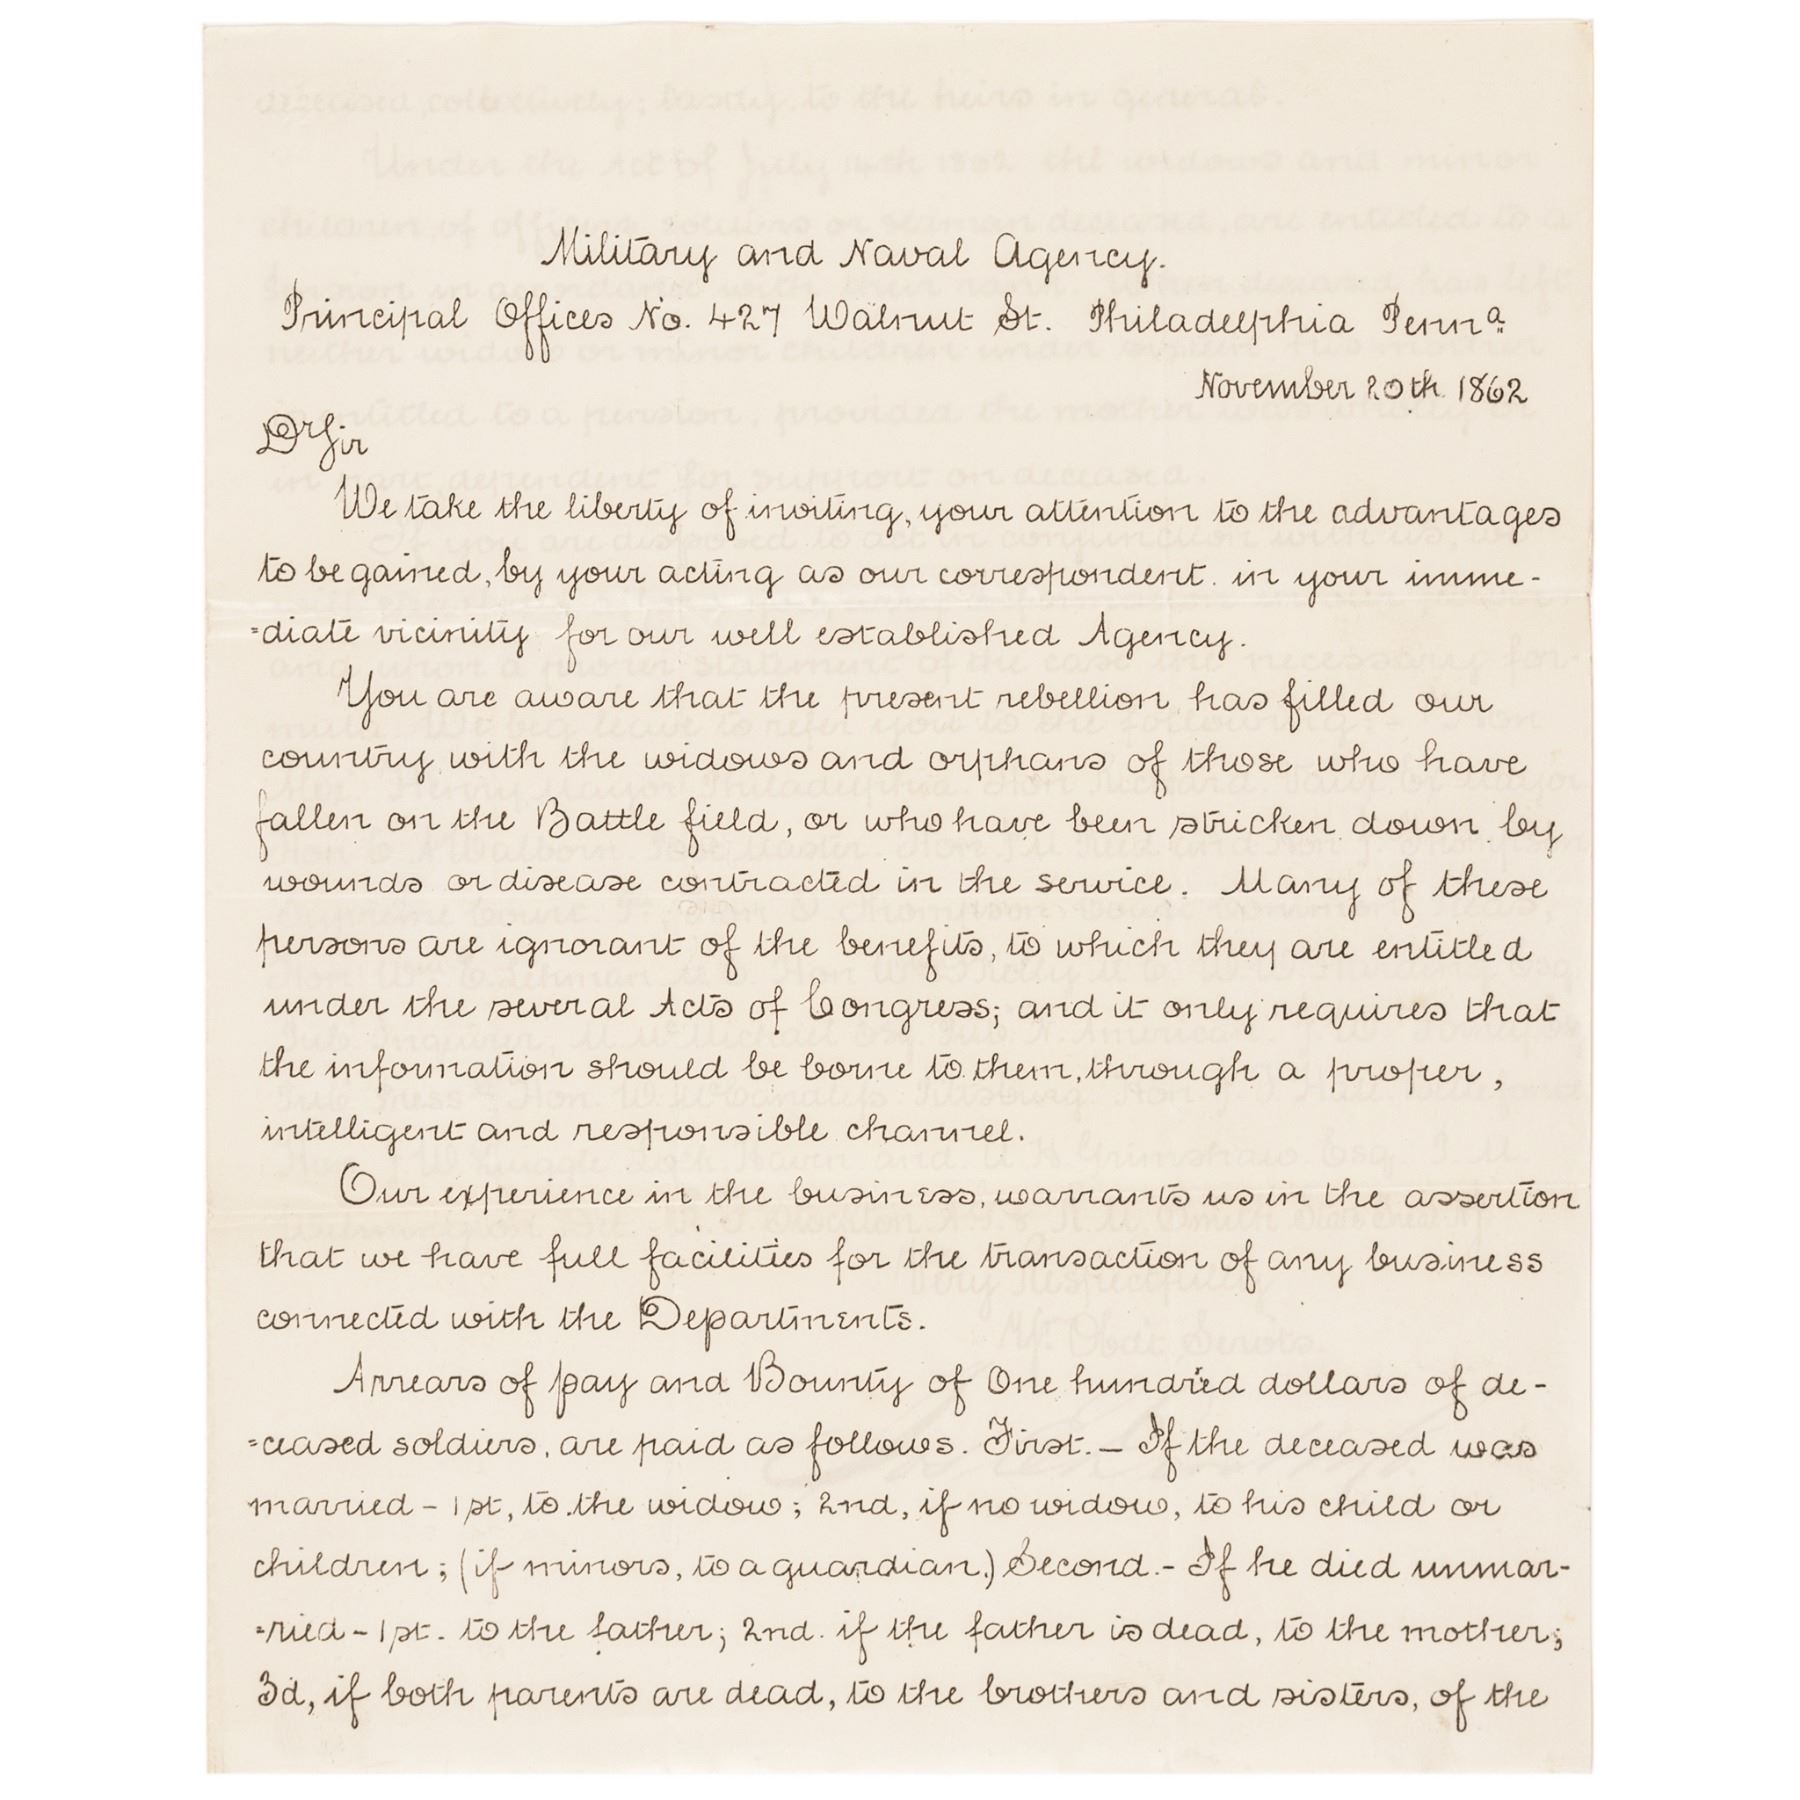 Military and Naval Agency.
Principal Offices No. 427 Walnut St. Philadelphia Pennª
November 20th 1862
Dr Sir
We take the liberty of inviting, your attention to the advantages
to be gained, by your acting as our correspondent in your imme-
=diate vicinity for our well established Agency.
You are aware that the present rebellion has filled our
country with the widows and orphans of those who have
fallen on the Battle field, or who have been stricken down by
wounds or disease contracted in the service. Many of these
persons are ignorant of the benefits, to which they are entitled
under the several Acts of Congress; and it only requires that
the information should be borne to them, through a proper,
intelligent and responsible channel.
Our experience in the business, warrants us in the assertion
that we have full facilities for the transaction of any business
connected with the Departments.
Arrears of pay and Bounty of One hundred dollars of de-
=ceased soldiers, are paid as follows. First. – If the deceased was
married – 1st, to the widow; 2nd, if no widow, to his child or
children; (if minors, to a guardian.) Second. – If he died unmar-
=ried – 1st. to the father; 2nd. if the father is dead, to the mother;
3d, if both parents are dead, to the brothers and sisters, of the